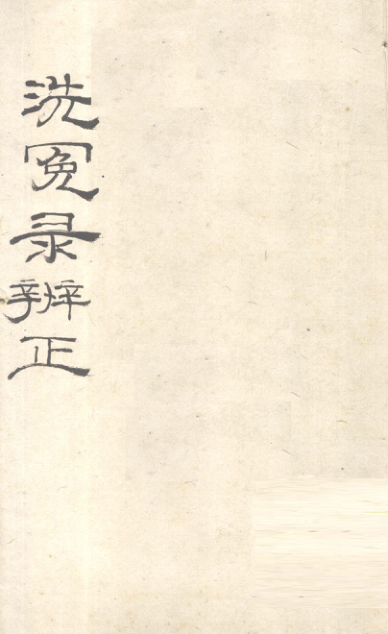 洗冤录辨正